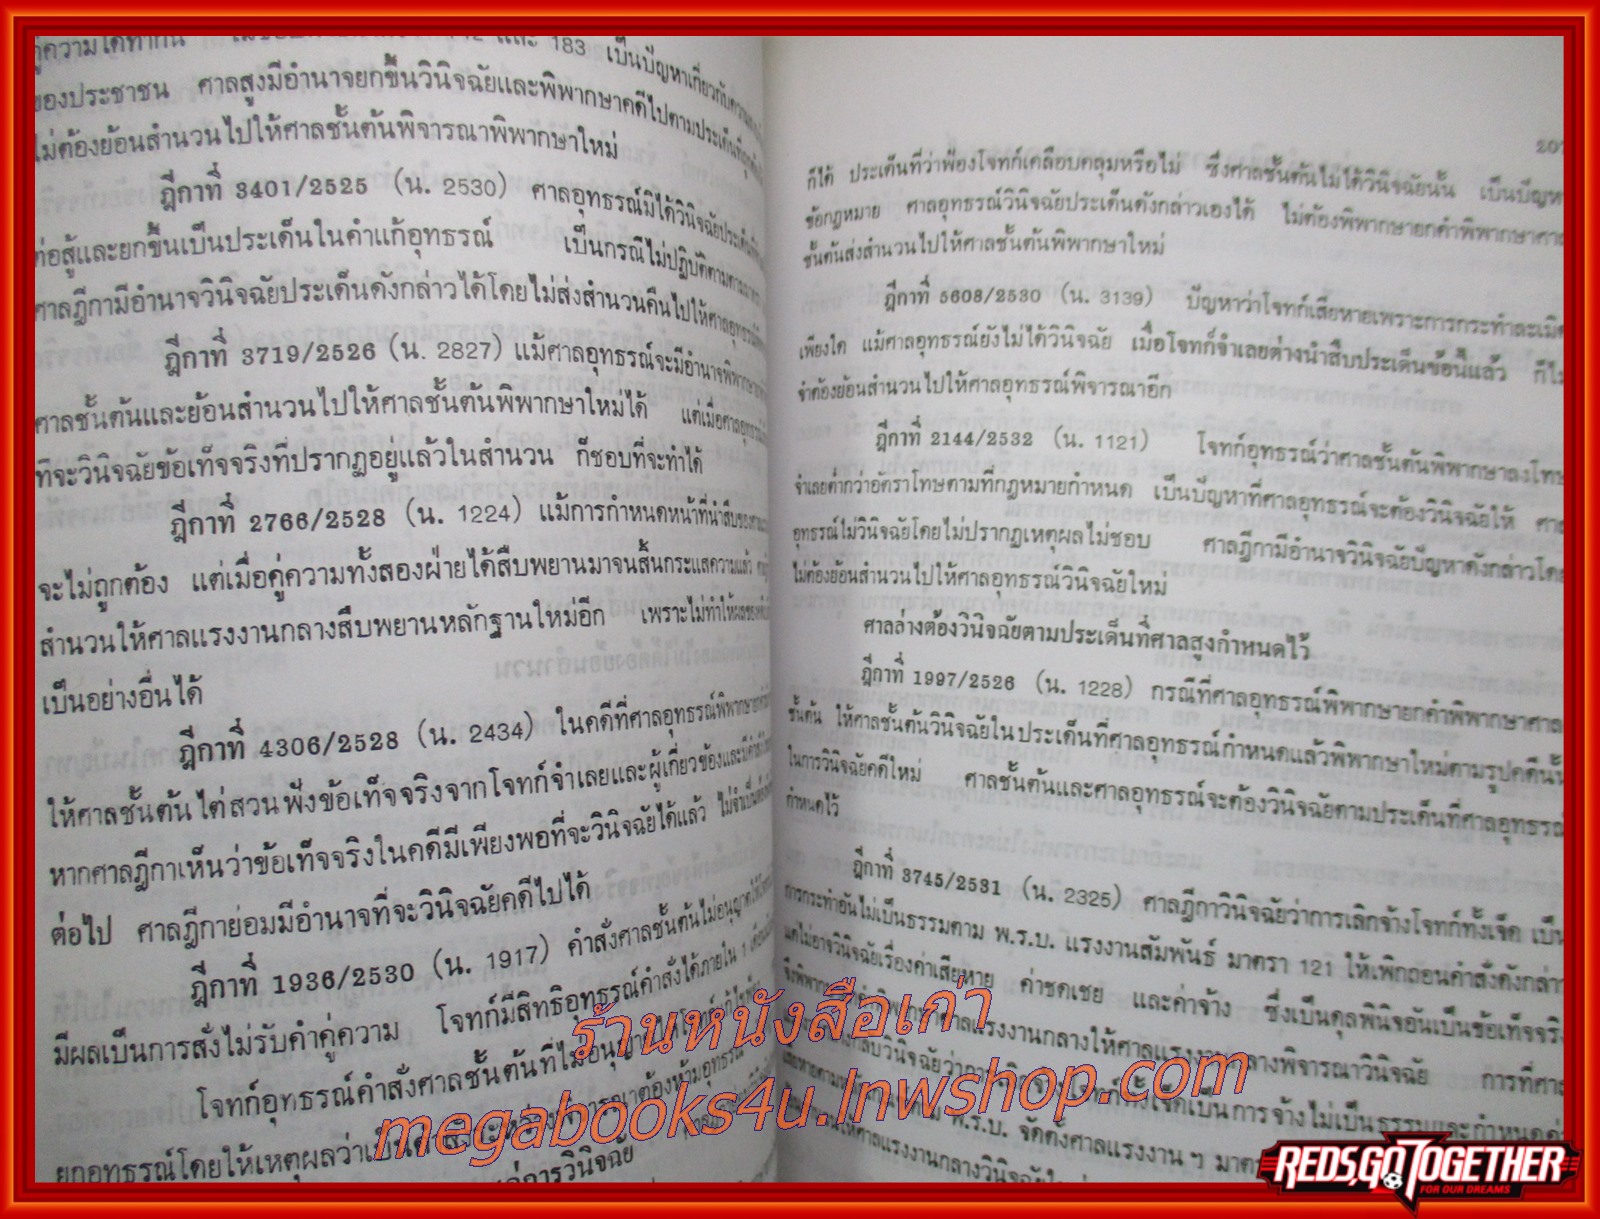 คู่ความได้ทำกัน และ 183 เป็นปัญหาเกี่ยวกับความ
ของประชาชน ศาลสูงมีอำนาจยกขึ้นวินิจฉัยและพิพากษาคดีไปตามประเด็นที่
ไม่ต้องย้อนสำนวนไปให้ศาลชั้นต้นพิจารณาพิพากษาใหม่
ฎีกาที่ 3401/2525 (น. 2530) ศาลอุทธรณ์มิได้วินิจฉัยประเด็น
ต่อสู้และยกขึ้นเป็นประเด็นในคำแก้อุทธรณ์ เป็นกรณีไม่ปฏิบัติตาม
ศาลฎีกามีอำนาจวินิจฉัยประเด็นดังกล่าวได้โดยไม่ส่งสำนวนคืนไปให้ศาลอุทธรณ์
ฎีกาที่ 3719/2526 (น. 2827) แม้ศาลอุทธรณ์จะมีอำนาจพิพากษา
ศาลชั้นต้นและย้อนสำนวนไปให้ศาลชั้นต้นพิพากษาใหม่ได้ แต่เมื่อศาลอุทธรณ์
ที่จะวินิจฉัยข้อเท็จจริงที่ปรากฏอยู่แล้วในสำนวน ก็ชอบที่จะทำได้
ฎีกาที่ 2766/2528 (น. 1224) แม้การกำหนดหน้าที่นำสืบของศาล
จะไม่ถูกต้อง แต่เมื่อคู่ความทั้งสองฝ่ายได้สืบพยานมาจนสิ้นกระแสความแล้ว
สำนวนให้ศาลแรงงานกลางสืบพยานหลักฐานใหม่อีก เพราะไม่ทำให้ผล
เป็นอย่างอื่นได้
ฎีกาที่ 4306/2528 (น. 2434) ในคดีที่ศาลอุทธรณ์พิพากษา
ให้ศาลชั้นต้นไต่สวนฟังข้อเท็จจริงจากโจทก์จำเลยและผู้เกี่ยวข้องและมีคำสั่ง
หากศาลฎีกาเห็นว่าข้อเท็จจริงในคดีมีเพียงพอที่จะวินิจฉัยได้แล้ว ไม่จำเป็น
ต่อไป ศาลฎีกาย่อมมีอำนาจที่จะวินิจฉัยคดีไปได้
ฎีกาที่ 1936/2530 (น. 1917) คำสั่งศาลชั้นต้นไม่อนุญาตให้
มีผลเป็นการสั่งไม่รับคำคู่ความ โจทก์มีสิทธิอุทธรณ์คำสั่งได้ภายใน 1 เดือน
โจทก์อุทธรณ์คำสั่งศาลชั้นต้นที่ไม่อนุญาตให้โจทก์แก้ไข
ยกอุทธรณ์โดยให้เหตุผลว่าเป็นคำสั่งระหว่างพิจารณาต้องห้ามอุทธรณ์
แก่การวินิจฉัย
ก็ได้ ประเด็นที่ว่าฟ้องโจทก์เคลือบคลุมหรือไม่ ซึ่งศาลชั้นต้นไม่ได้วินิจฉัยนั้น เป็นปัญหา
ข้อกฎหมาย ศาลอุทธรณ์วินิจฉัยประเด็นดังกล่าวเองได้ ไม่ต้องพิพากษายกคำพิพากษาศาล
ชั้นต้นส่งสำนวนไปให้ศาลชั้นต้นพิพากษาใหม่
ฎีกาที่ 5608/2530 (น. 3139) ปัญหาว่าโจทก์เสียหายเพราะการกระทำละเมิด
เพียงใด แม้ศาลอุทธรณ์ยังไม่ได้วินิจฉัย เมื่อโจทก์จำเลยต่างนำสืบประเด็นข้อนี้แล้ว ก็ไม่
จำต้องย้อนสำนวนไปให้ศาลอุทธรณ์พิจารณาอีก
ฎีกาที่ 2144/2532 (น. 1121) โจทก์อุทธรณ์ว่าศาลชั้นต้นพิพากษาลงโทษ
จำเลยต่ำกว่าอัตราโทษตามที่กฎหมายกำหนด เป็นปัญหาที่ศาลอุทธรณ์จะต้องวินิจฉัยให้ ศาล
อุทธรณ์ไม่วินิจฉัยโดยไม่ปรากฏเหตุผลไม่ชอบ ศาลฎีกามีอำนาจวินิจฉัยปัญหาดังกล่าวโดย
ไม่ต้องย้อนสำนวนไปให้ศาลอุทธรณ์วินิจฉัยใหม่
ศาลล่างต้องวินิจฉัยตามประเด็นที่ศาลสูงกำหนดไว้
ฎีกาที่ 1997/2526 (น. 1228) กรณีที่ศาลอุทธรณ์พิพากษายกคำพิพากษาศาล
ชั้นต้น ให้ศาลชั้นต้นวินิจฉัยในประเด็นที่ศาลอุทธรณ์กำหนดแล้วพิพากษาใหม่ตามรูปคดีนั้น
ในการวินิจฉัยคดีใหม่ ศาลชั้นต้นและศาลอุทธรณ์จะต้องวินิจฉัยตามประเด็นที่ศาลอุทธรณ์
กำหนดไว้
ฎีกาที่ 3745/2531 (น. 2325) ศาลฎีกาวินิจฉัยว่าการเลิกจ้างโจทก์ทั้งเจ็ด เป็น
การกระทำอันไม่เป็นธรรมตาม พ.ร.บ. แรงงานสัมพันธ์ มาตรา 121 ให้เพิกถอนคำสั่งดังกล่าว
แต่ไม่อาจวินิจฉัยเรื่องค่าเสียหาย ค่าชดเชย และค่าจ้าง ซึ่งเป็นดุลพินิจอันเป็นข้อเท็จจริง
จึงพิพากษายกคำพิพากษาศาลแรงงานกลางให้ศาลแรงงานกลางพิจารณาวินิจฉัย การที่ศาล
กลับวินิจฉัยว่าการเลิกจ้างโจทก์ทั้งเจ็ดเป็นการจ้างไม่เป็นธรรมและกำหนดค่า
พ.ร.บ. จัดตั้งศาลแรงงาน ฯ มาตรา
ให้ศาลแรงงานกลางวินิจฉัย
ร้านหนังสือเก่า
megabooks4u.lnwshop.com
REDS,GO TOGETHER
FOR OUR DREAMS